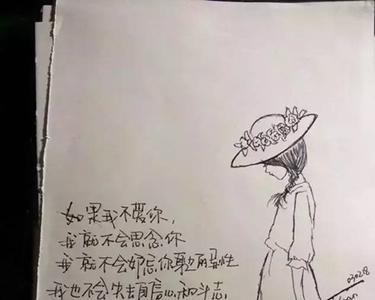 如果我不爱你，
我就不会思念你
我就不会妒忌你身边的异性
我也不会失去自信心和斗志
03028